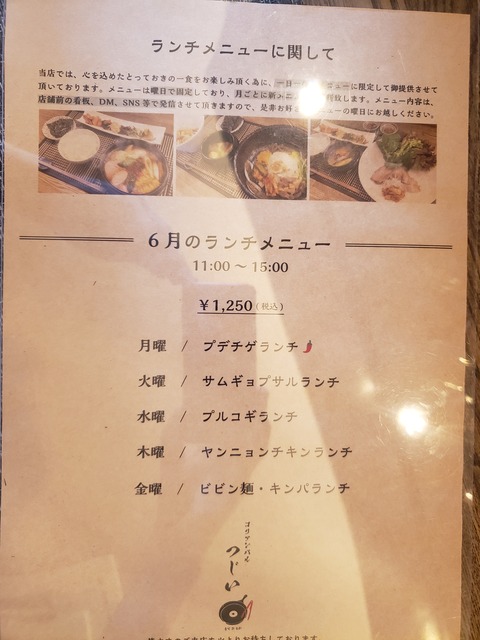 ランチメニューに関して
当店では、心を込めたとっておきの一食をお楽しみ頂く為に、一日一 ューに限定して御提供させて
頂いております。メニューは曜日で固定しており、月ごとに新 致します。メニュー内容は、
店舗前の看板、DM、SNS等で発信させて頂きますので、是非お好 ューの曜日にお越しください。
6月のランチメニュー
11:00 〜 15:00
¥1,250(税込)
月曜 / プデチゲランチ
火曜 / サムギョプサルランチ
水曜 / プルコギランチ
木曜 / ヤンニョンチキンランチ
金曜 / ビビン麺・キンパランチ
コリアンバル
つじい